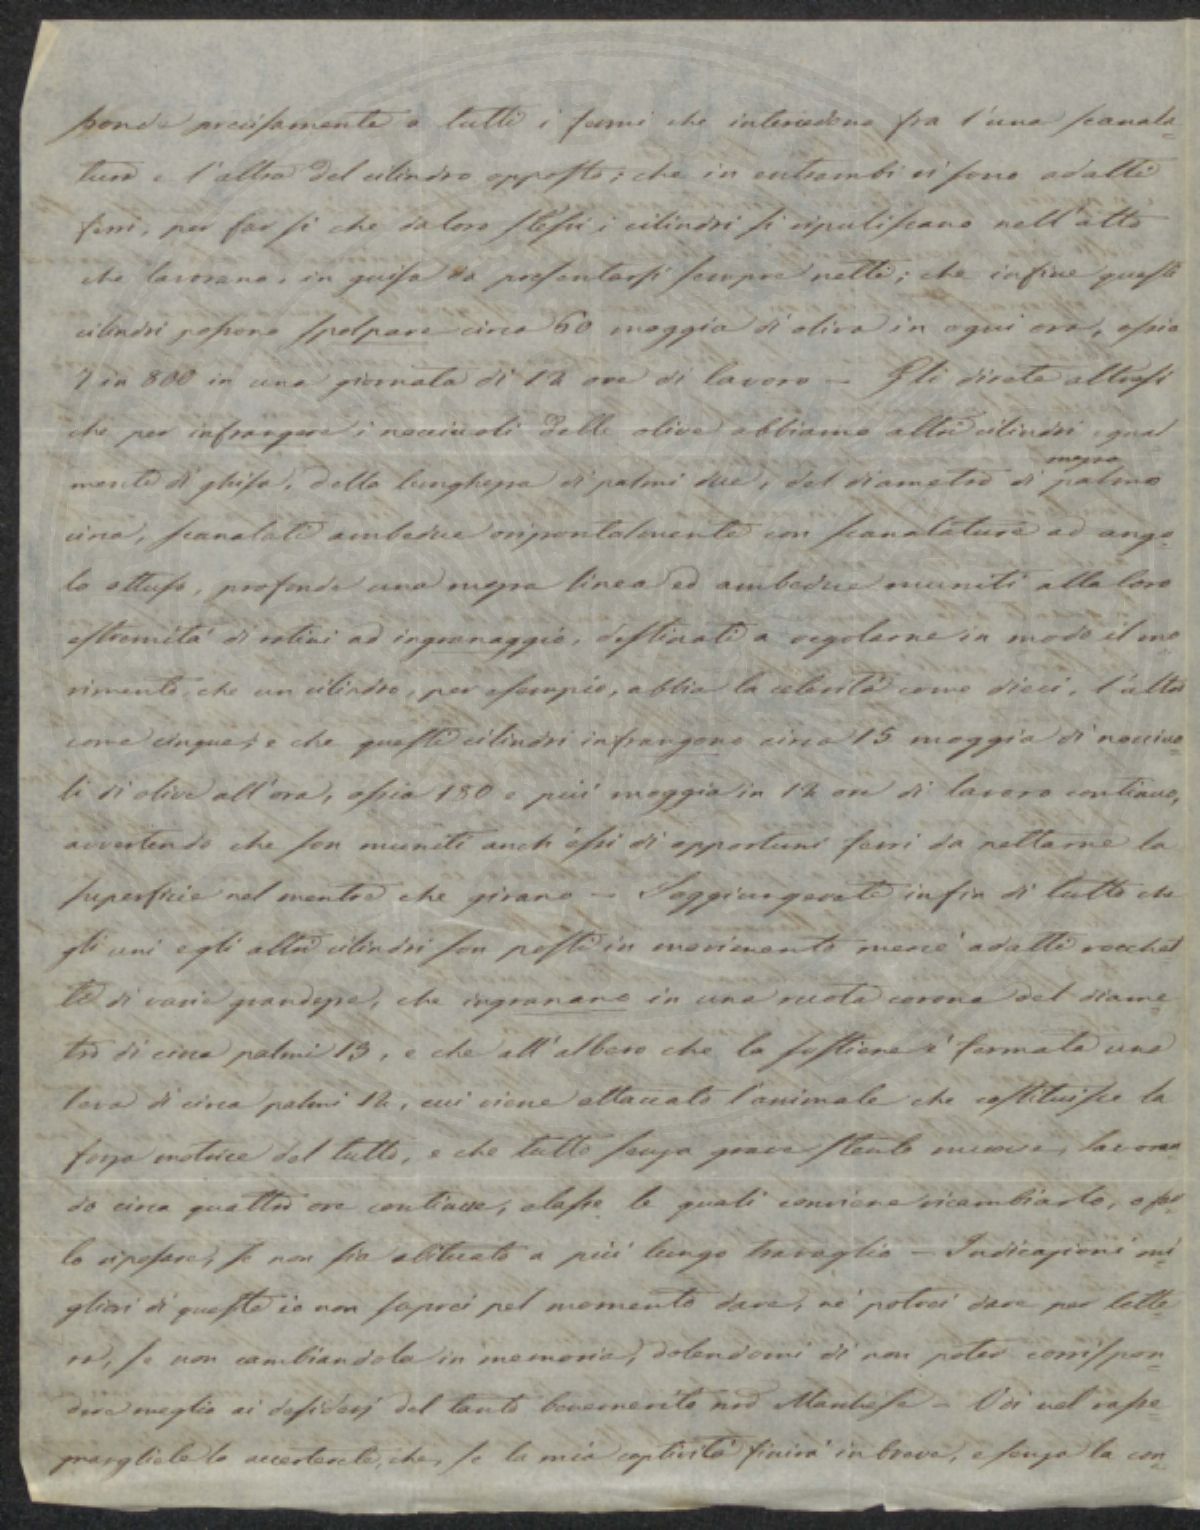 ponde precisamente a tutti i fermi che intercedono fra l'una scanala=
tura e l'altra del cilindro opposto; che in entrambi vi sono adatti
ferri, per far sì che da loro stessi i cilindri si ripuliscano nell'atto
che lavorano, in guisa da presentarsi sempre netti; che infine questi
cilindri possono spolpare circa 60 moggia di oliva in ogni ora, ossia
7 in 800 in una giornata di 12 ore di lavoro — Gli direte altresì
che per infrangere i nocciuoli delle olive abbiamo altri cilindri egual
mente di ghisa, della lunghezza di palmi due, del diametro di mezzo palmo
circa, scanalati ambedue orizontalmente con scanalature ad ango=
lo ottuso, profonde una mezza linea ed ambedue muniti alla loro
estremità di rotini ad ingranaggio, destinati a regolarne in modo il mo
vimento, che un cilindro, per esempio, abbia la celerità come dieci, l'altro
come cinque; e che questi cilindri infrangono circa 15 moggia di nocciuo=
li di olive all'ora, ossia 180 e più moggia in 12 ore di lavoro continuo,
avvertendo che son muniti anch'essi di opportuni ferri da nettarne la
superficie nel mentre che girano — Soggiungerete infin di tutto che
gli uni e gli altri cilindri son posti in movimento mercè adatti rocchet
ti di varie grandezze, che ingranano in una ruota corona del diame=
tro di circa palmi 13, e che all'albero che la sostiene è fermata una
leva di circa palmi 12, cui viene attaccato l'animale che costituisce la
forza motrice del tutto, e che tutto senza grave stento muove, lavoran=
do circa quattro ore continue, elasse le quali conviene ricambiarlo, o far=
lo riposare, se non sia abituato a più lungo travaglio — Indicazioni mi=
gliori di queste io non saprei pel momento dare, nè potrei dare per lette=
ra, se non cambiandola in memoria, dolendomi di non poter corrispon=
dere meglio ai desiderj del tanto benemerito Marchese — Voi nel rasse=
gnargliele lo accerterete, che, se la mia captività finirà in breve, e senza la con=